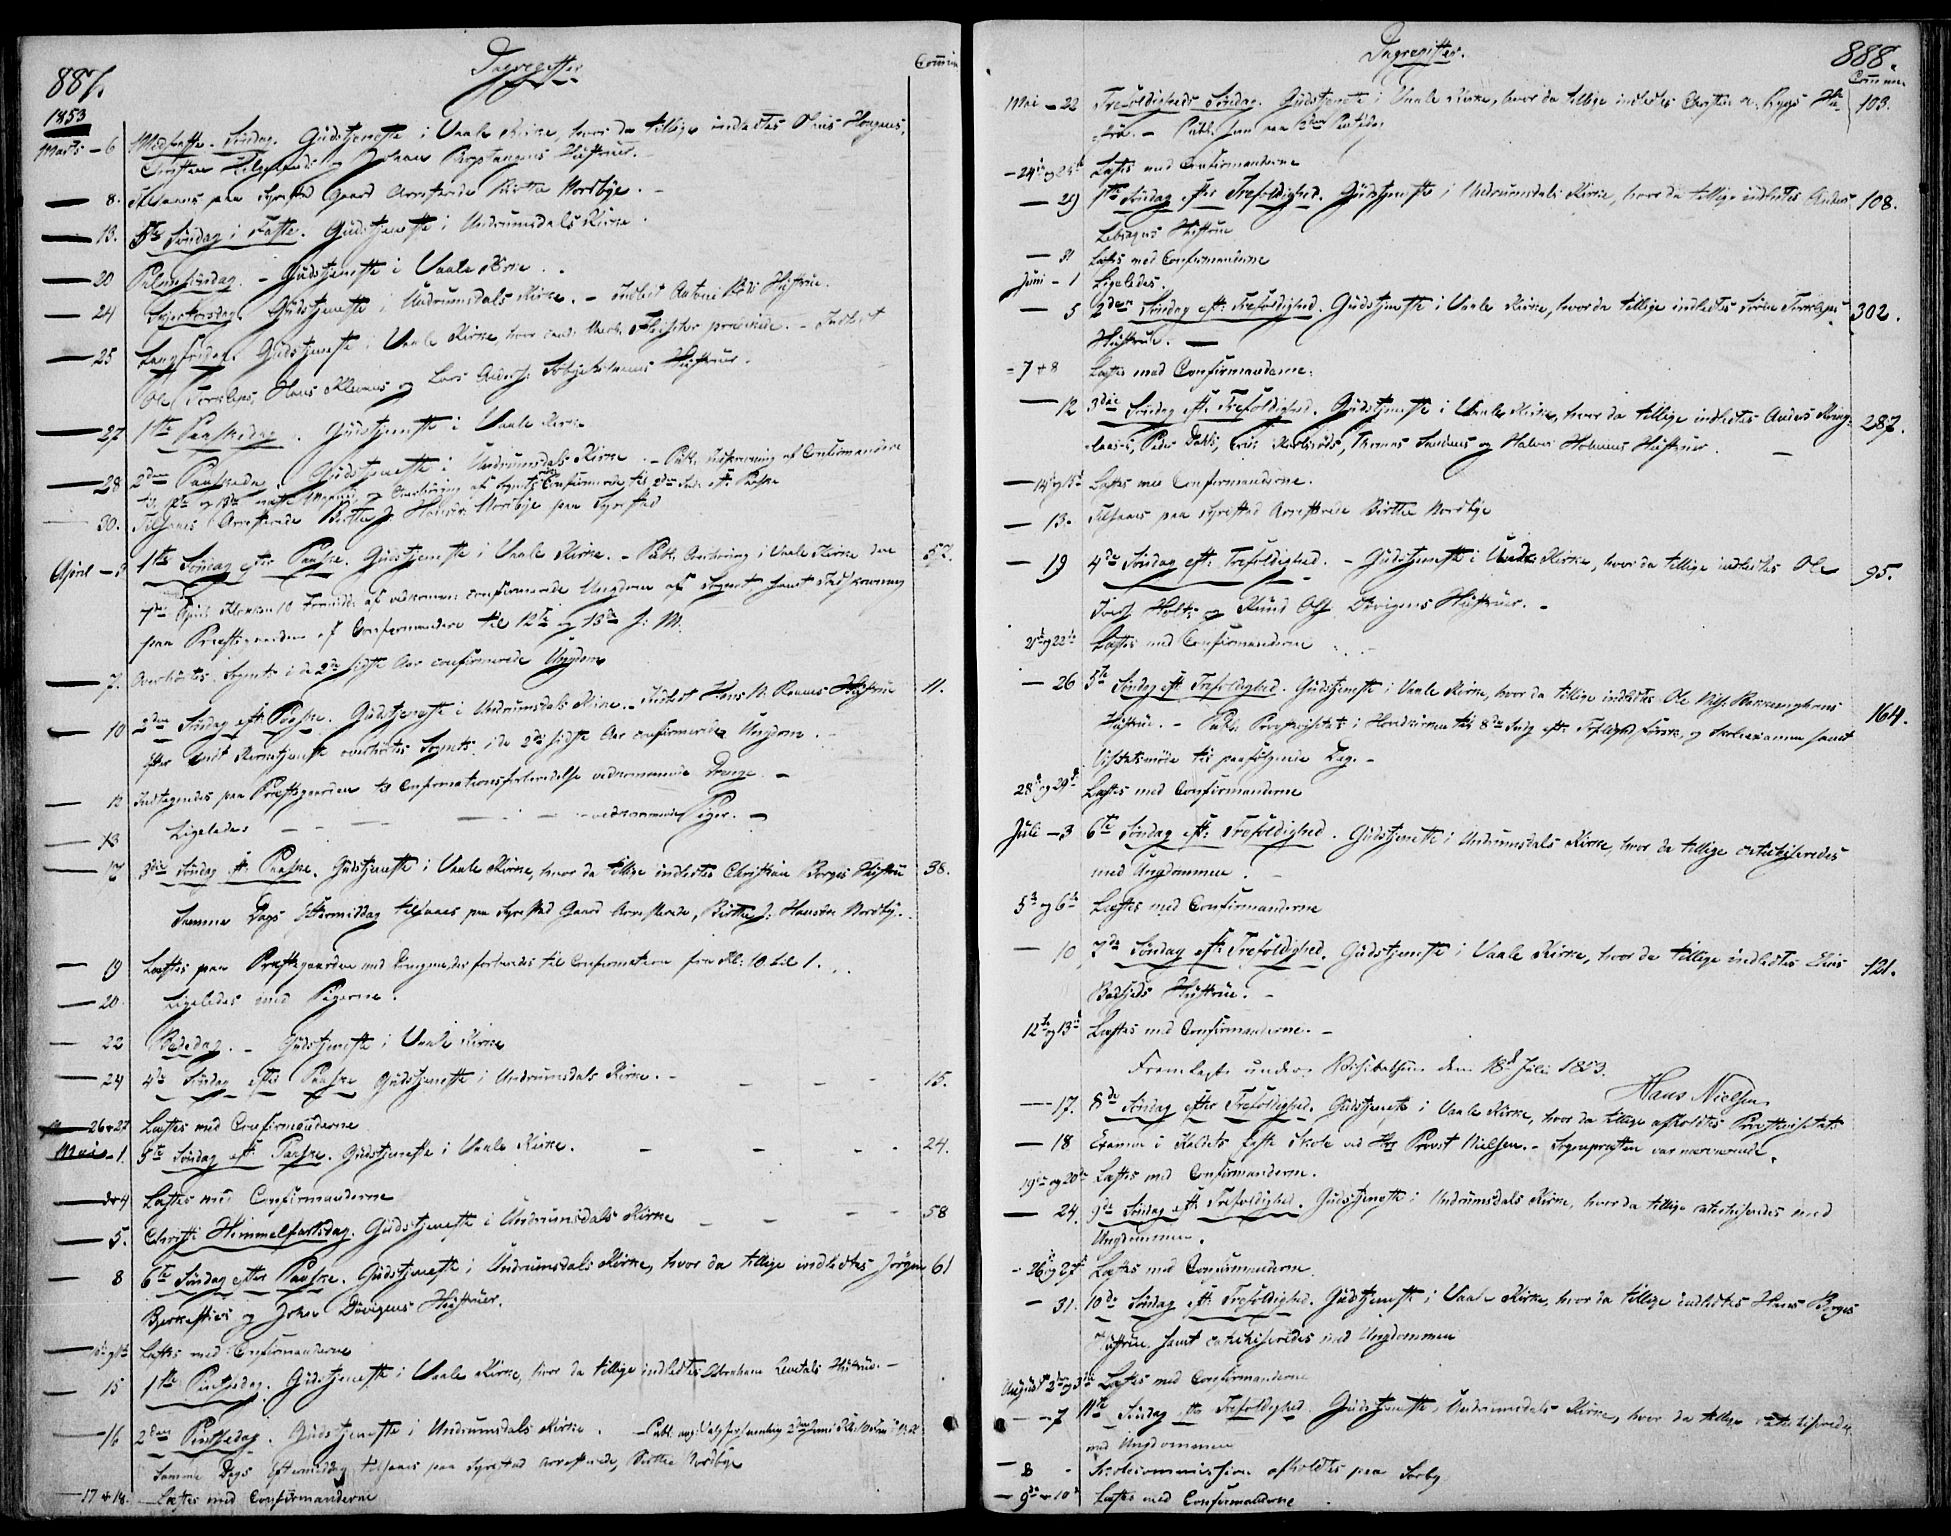 887.
Dagregister
Commun.
1853
Marts - 6 Midfaste-Søndag. Gudstjeneste i Vaale Kirke, hvor da tillige indledtes Hougens,
Christian og Johan Hustruer. -
- 8. Tilsaaes paa Syrestad Gaard Arrestanten Birthe Nordbye. -
- 13. 5te Søndag i Faste. Gudstjeneste i Undrumsdals Kirke.
- 20 Palmesøndag. - Gudstjeneste i Vaale Kirke.
- 24 Skjertorsdag. Gudstjeneste i Undrumsdals Kirke. - Indledt Antoni Hustrue.
- 25 Langfredag. Gudstjeneste i Vaale Kirke, hvor cand. prædikede. - Indledt
Ole Torsleps, Hans Klevens og Lars Anders: Hustruer.
- 27 1ste Paaskedag. Gudstjeneste i Vaale Kirke
- 28 2den Paaskedag. Gudstjeneste i Undrumsdals Kirke. - Publ. Indskrivning af Confirmandere
til 12te og 13de næste Maaned, og Overhøring af Sognets Confirmerede til 2den Sønd. eft. Paaske
- 30. Tilsaaes Arrestanten Birthe J. Hansdr. Nordbye paa Syrestad
April - 3 1ste Søndag efter Paaske. Gudstjeneste i Vaale Kirke. - Publ. Overhøring i Vaale Kirke den 57.
7de April Klokken 10 Formidd. af vedkommen: confirmerede Ungdom af Sognet, samt Indskrivning
paa Præstegaarden af Confirmandere til 12te og 13de d: M.
- 7. Overhørtes Sognets i de 2de sidste Aar confirmerede Ungdom
- 10 2den Søndag eft. Paaske. Gudstjeneste i Undrumsdals Kirke. - Indledt Hans N. Hustrue 11.
Efter endt Kirketjeneste overhørtes Sognets i de 2de sidste Aar confirmerede Ungdom. -
- 12 Indtagendes paa Præstegaarden til Confirmationsforberedelse vedkommende Drenge. -
- 13 Ligeledes - - - - - vedkommende Piger. -
- 17 3die Søndag eft. Paaske. Gudstjeneste i Vaale Kirke, hvor da tillige indledtes Christian Borges Hustrue 38.
Samme Dags Eftermiddag tilsaaes paa Syrestad Gaard Arrestanten, Birthe J: Hansdr. Nordby.
- 19 Læstes paa Præstegaarden med Drengene, der forberedes til Confirmation fra Kl: 10 til 1.
- 20. Ligeledes med Pigerne.
- 22 Bededag. - Gudstjeneste i Vaale Kirke
- 24 4de Søndag efter Paaske Gudstjeneste i Undrumsdals Kirke. - - - - 15.
- 26 & 27 Læstes med Confirmanderne
Mai - 1. 5te Søndag eft. Paaske. Gudstjeneste i Vaale Kirke. - - - - 24.
- 3 & 4 Læstes med Confirmanderne
- 5. Christi Himmelfartsdag. Gudstjeneste i Undrumsdals Kirke - - - - 58
- 8 6te Søndag efter Paaske. Gudstjeneste i Undrumsdals Kirke, hvor da tillige indledtes Jørgen 61
og Johan Düvigens Hustruer.
- Læstes med Confirmanderne
- 15 1ste Pintsedag. Gudstjeneste i Vaale Kirke, hvor da tillige indledtes Abraham Hustrue. -
- 16 2den Pintsedag. Gudstjeneste i Undrumsdals Kirke. - Publ.
Samme Dags Eftermiddag tilsaaes paa Syrestad Arrestanten, Birthe Nordbye
- 17 & 18. - Læstes med Confirmanderne
Dagregister.
888.
Commun.
Mai - 22 Trefoldigheds Søndag. Gudstjeneste i Vaale Kirke, hvor da tillige indledtes Christen Hu- 103.
strue. -
- 24de og 25de Læstes med Confirmanderne
- 29 1ste Søndag efter Trefoldighed. Gudstjeneste i Undrumsdals Kirke, hvor da tillige indledtes Anders 108.
Hustrue
- 31 Læstes med Confirmanderne
Juni - 1 Ligeledes.
- 5 2den Søndag eft: Trefoldighed. Gudstjeneste i Vaale Kirke, hvor da tillige indledtes Søren Torsleps 302.
Hustrue. -
- 7 & 8 Læstes med Confirmanderne.
- 12 3die Søndag eft. Trefoldighed. Gudstjeneste i Vaale Kirke, hvor da tillige indledtes Anders 287.
Thomas og Halvor Holmens Hustruer. -
- 14de og 15de Læstes med Confirmanderne.
- 13. Tilsaaes paa Syrestad Arrestanten Birthe Nordbye
- 19 4de Søndag eft: Trefoldighed. - Gudstjeneste i Undr. Kirke, hvor da tillige indledtes Ole 95.
Iversf. Holts og Knud Ols. Düvigens Hustruer. -
21de og 22de Læstes med Confirmanderne
- 26 5te Søndag eft. Trefoldighed. Gudstjeneste i Vaale Kirke, hvor da tillige indledtes Ole Nilsf. 164.
Hustrue. - Publ. Provstevisitats i Hovedkirken til 8de Sndg eft. Trefoldighed førstk. og Skoleexamen samt
til paafølgende Dag. -
28de og 29de Læstes med Confirmanderne
Juli - 3 6te Søndag eft: Trefoldighed. Gudstjeneste i Undrumsdals Kirke, hvor da tillige catechiseredes
med Ungdommen.
5te og 6te Læstes med Confirmanderne
- 10 7de Søndag eft. Trefoldighed. Gudstjeneste i Vaale Kirke, hvor da tillige indledtes 121.
Hustrue. -
12te og 13de Læstes med Confirmanderne. -
Fremlagt under Visitatsen den 18de Juli 1853.
Hans Nielsen
- 17. 8de Søndag efter Trefoldighed. Gudstjeneste i Vaale Kirke, hvor da tillige afholdtes Provstevisitats
- 18 Examen i Kaldets faste Skole ved Hr Provst Nielsen. - Sognepresten var nærværende.
19de og 20de Læstes med Confirmanderne.
- 24. 9de Søndag eft. Trefoldighed. Gudstjeneste i Undrumsdals Kirke, hvor da tillige catechiseredes med
Ungdommen.
- 26 og 27de Læstes med Confirmanderne.
- 31. 10de Søndag eft. Trefoldighed. Gudstjeneste i Vaale Kirke, hvor da tillige indledtes Hans Borges
Hustrue samt catechiseredes med Ungdommen
August 2den og 3die Læstes med Confirmanderne
- 7 11te Søndag eft. Trefoldighed. Gudstjeneste i Undrumsdals Kirke, hvor da tillige catechiseredes
med Ungdommen
- 8 - Skolecommission afholdtes paa Sørby
- 9de & 10de Læstes med Confirmanderne